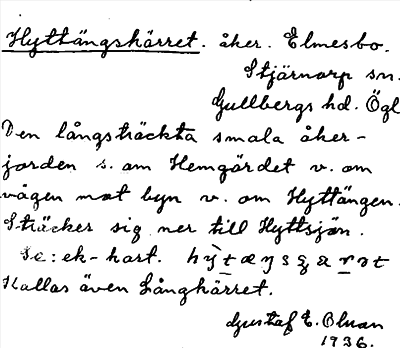 Hyttängskärret. åker. Elmesbo.
Stjärnorp sn.
Gullbergs hd. Ögl
Den långsträckta smala åker-
jorden s. om Hemgärdet v. om
vägen mot byn v. om Hyttängen.
Sträcker sig ner till Hyttsjön.
Se: ek-kart.
Kallas även Långkärret.
Gustaf E. Olsson
1936.